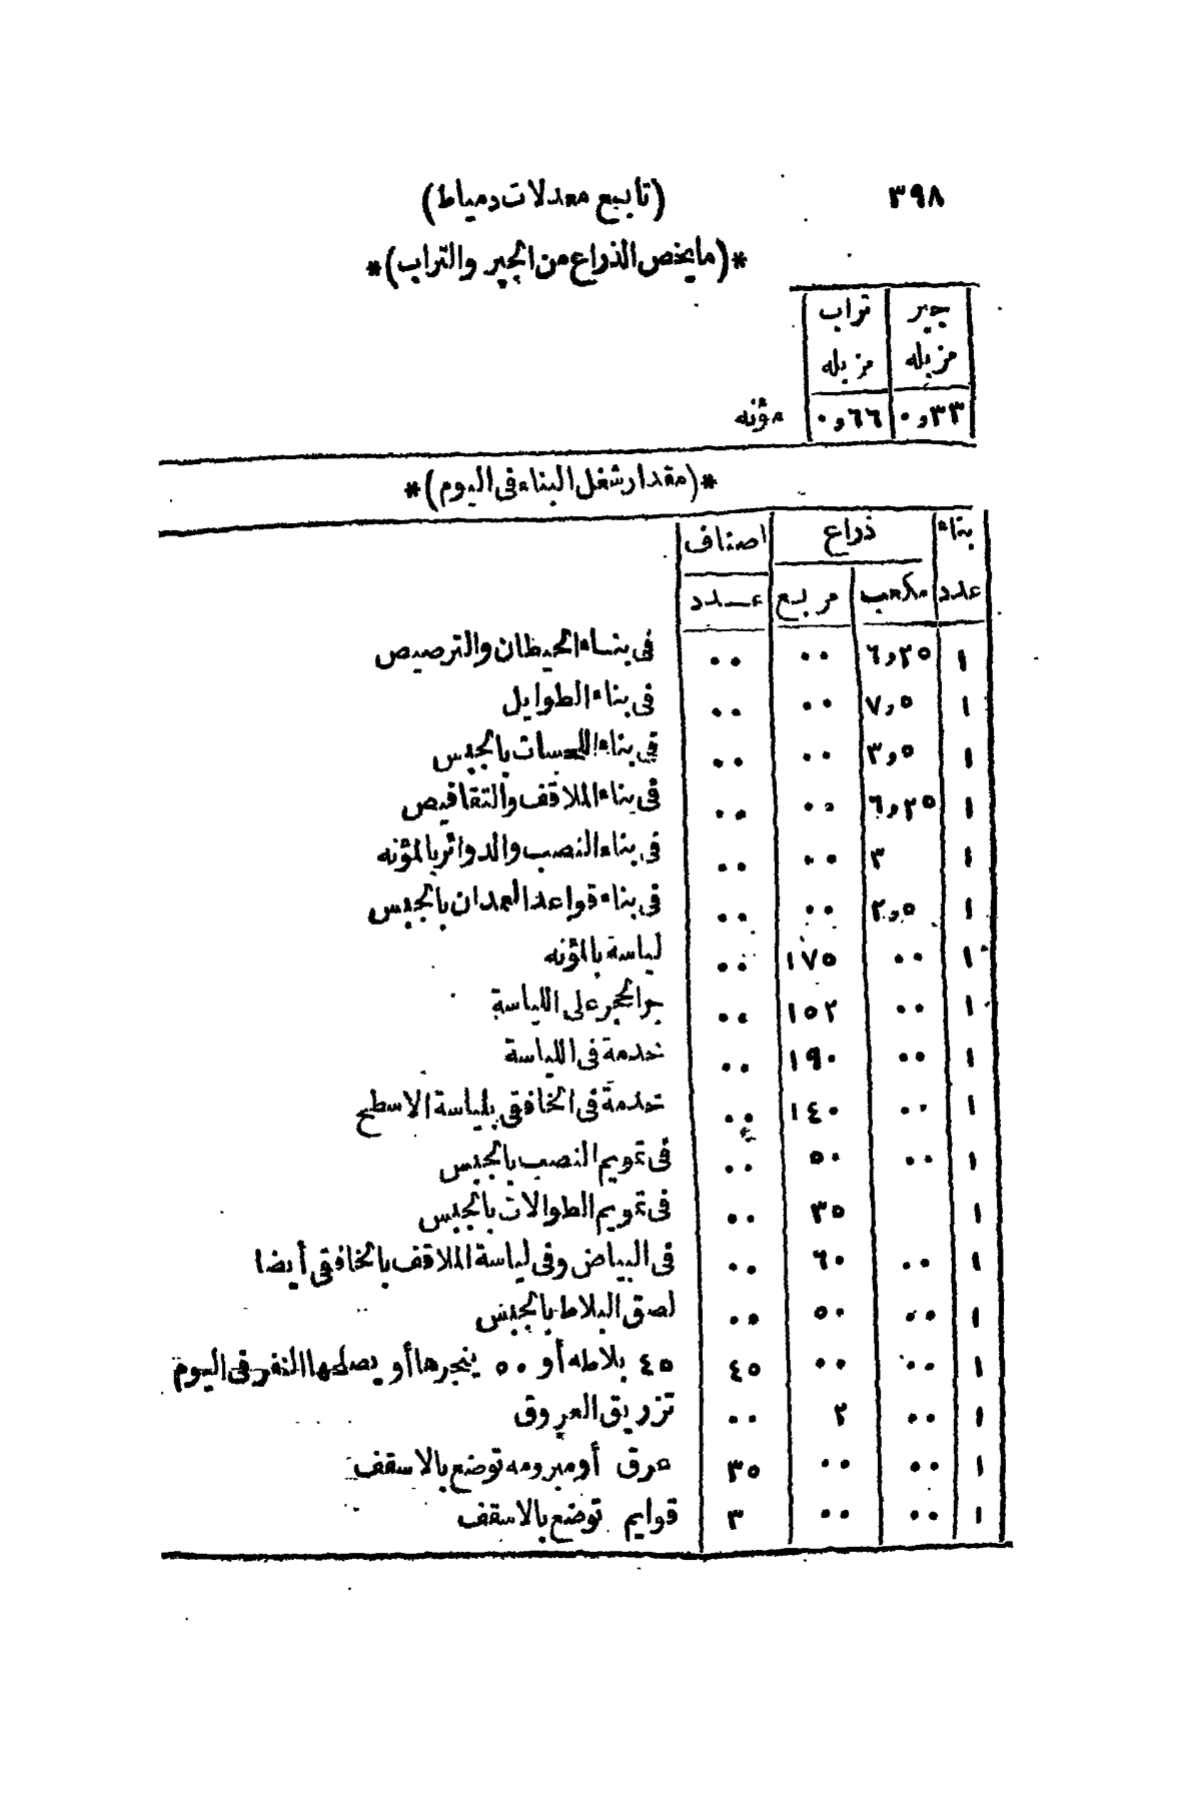 ٣٩٨
(تابع معدلات دمياط)
*(ما يخص الذراع من الجير والتراب)*
جير تراب
مزبله مزبله
٠,٣٣ ٠,٦٦ مؤنه
*(مقدار شغل البناء فى اليوم)*
بناء ذراع اصناف
عدد مكعب مربع عدد
١ ٦,٢٥ ٠٠ ٠٠ فى بناء الحيطان والترصيص
١ ٧,٥ ٠٠ ٠٠ فى بناء الطوايل
١ ٣,٥ ٠٠ ٠٠ فى بناء بالجبس
١ ٦,٢٥ ٠٠ ٠٠ فى بناء الملاقف والتقافيص
١ ٣ ٠٠ ٠٠ فى بناء النصب والدوائر بالمؤنه
١ ٢,٥ ٠٠ ٠٠ فى بناء قواعد العمدان بالجبس
١ ٠٠ ١٧٥ ٠٠ لياسة بالمؤنه
١ ٠٠ ١٥٢ ٠٠ جر الحجر على اللياسة
١ ٠٠ ١٩٠ ٠٠ خدمة فى اللياسة
١ ٠٠ ١٤٠ ٠٠ خدمة فى الخافقى بلياسة الاسطح
١ ٠٠ ٥٠ ٠٠ فى تمويم النصب بالجبس
١ ٣٥ ٠٠ فى تمويم الطوالات بالجبس
١ ٠٠ ٦٠ ٠٠ فى البياض وفى لياسة الملاقف بالخافقى أيضا
١ ٠٠ ٥٠ ٠٠ لصق البلاط بالجبس
١ ٠٠ ٠٠ ٤٥ ٤٥ بلاطه أو ٥٠ ينجرها أو يصلحها النفر فى اليوم
١ ٠٠ ٢ ٠٠ تزريق العروق
١ ٠٠ ٠٠ ٣٥ عرق أو مبرومه توضع بالاسقف
١ ٠٠ ٠٠ ٣ قوايم توضع بالاسقف